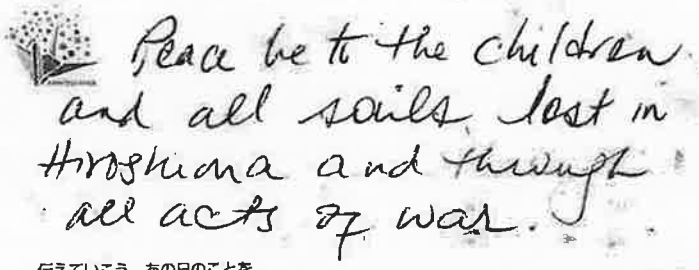 Peace be to the children
and all souls lost in
Hiroshima and through
all acts of war.
伝えていこう あの日のことを